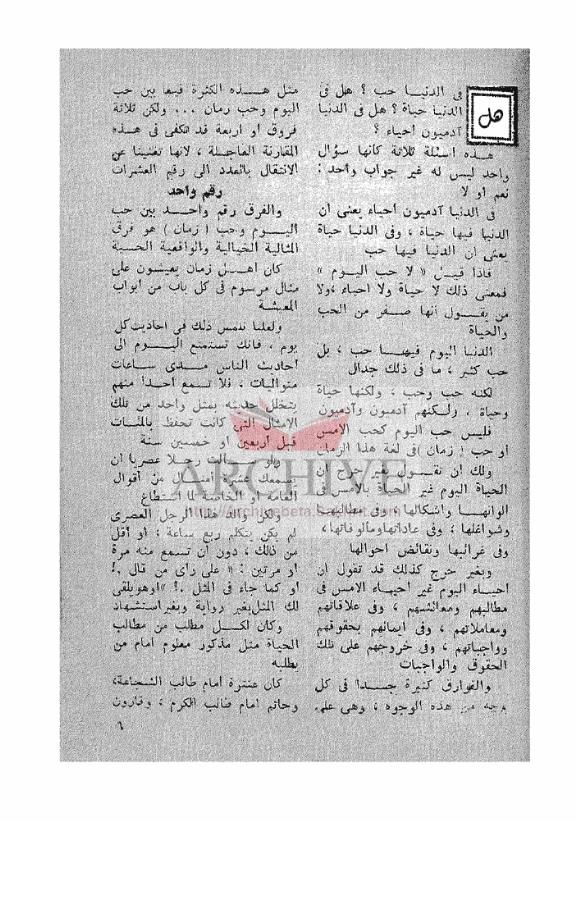 هل
فى الدنيا حب ؟ هل فى
الدنيا حياة ؟ هل فى الدنيا
آدميون احياء ؟
هذه اسئلة ثلاثة كأنها سؤال
واحد ليس له غير جواب واحد :
نعم او لا
فى الدنيا آدميون احياء يعنى ان
الدنيا فيها حياة ، وفى الدنيا حياة
يعنى ان الدنيا فيها حب
فاذا قيل « لا حب اليوم »
فمعنى ذلك لا حياة ولا احياء ،ولا
من يقول أنها صفر من الحب
والحياة
الدنيا اليوم فيها حب ، بل
حب كثير ، ما فى ذلك جدال
لكنه حب وحب ، ولكنها حياة
وحياة ، ولكنهم آدميون وآدميون
فليس حب اليوم كحب الامس
او حب ( زمان )فى لغة هذا الزمان
ولك ان تقول بغير حرج ان
الحياة اليوم غير الحياة بالامس فى
الوانها واشكالها ، وفى مطالبها
وشواغلها ، وفى عاداتها ومالوفاتها،
وفى غرائبها ونقائض احوالها
وبغير حرج كذلك قد تقول ان
احياء اليوم غير احياء الامس فى
مطالبهم ومعائشهم ، وفى علاقاتهم
ومعاملاتهم ، وفى ايمانهم بحقوقهم
وواجباتهم ، وفى خروجهم على تلك
الحقوق والواجبات
والفوارق كثيرة جدا فى كل
وجه من هذه الوجوه ، وهى على
مثل هذه الكثرة فيما بين حب
اليوم وحب رمان ... ولكن ثلاثة
فروق او اربعة قد تكفى فى هذه
المقارنة العاجلة ، لانها تغنينا عن
الانتقال بالعدد الى رقم العشرات
رقم واحد
والفرق رقم واحد بين حب
اليوم وحب ( زمان ) هو فرق
المثالية الخيالية والواقعية الحسية
كان اهل زمان يعيشون على
مثال مرسوم فى كل باب من ابواب
المعيشة
ولعلنا نلمس ذلك فى احاديث كل
يوم ، فانك تستمتع اليوم الى
احاديث الناس مدى ساعات
متواليات ، فلا تسمع احدا منهم
يتخلل حديثه بمثل واحد من تلك
الامثال التى كانت تحفظ بالمئات
قبل اربعين او خمسين سنة
ولو سألت رجلا عصريا ان
يسمعك عشرة أمثال من أقوال
العامة او الخاصة لما استطاع
ولكن والد هذا الرجل العصرى
لم يكن يتكلم ربع ساعة ، او أقل
من ذلك ، دون أن تسمع منه مرة
او مرتين : « على رأى من قال .!
او كما جاء فى المثل .! »اوهو يلقى
لك المثل بغير رواية وبغير استشهاد
وكان لكل مطلب من مطالب
الحياة مثل مذكور معلوم امام من
يطلبه
كان عنترة امام طالب الشجاعة،
وحاتم امام طالب الكرم ، وقارون
٦
ARCHIVE